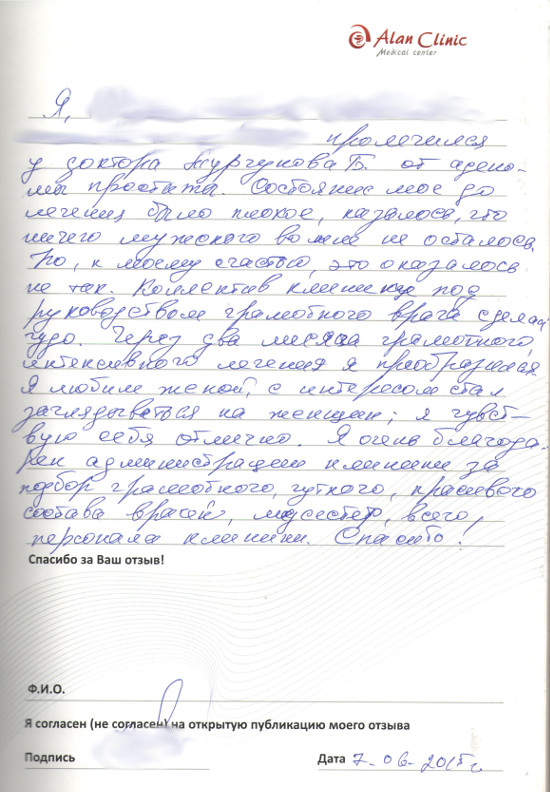 Alan Clinic
Medical center
Я,
пролечился
у доктора Журчукова Б. от адено-
мы простаты. Состояние мое до
лечения было плохое, казалось, что
ничего мужского во мне не осталось.
Но, к моему счастью, это оказалось
не так. Коллектив клиники под
руководством грамотного врача сделал
чудо. Через два месяца грамотного,
интенсивного лечения я преобразился.
Я любим женой, с интересом стал
заглядываться на женщин; я чувст-
вую себя отлично. Я очень благода-
рен администрации клиники за
подбор грамотного, чуткого, красивого
состава врачей, медсестер, всего
персонала клиники. Спасибо!
Спасибо за Ваш отзыв!
Ф.И.О.
Я согласен (не согласен) на открытую публикацию моего отзыва
Подпись Дата 7-06-2015г.